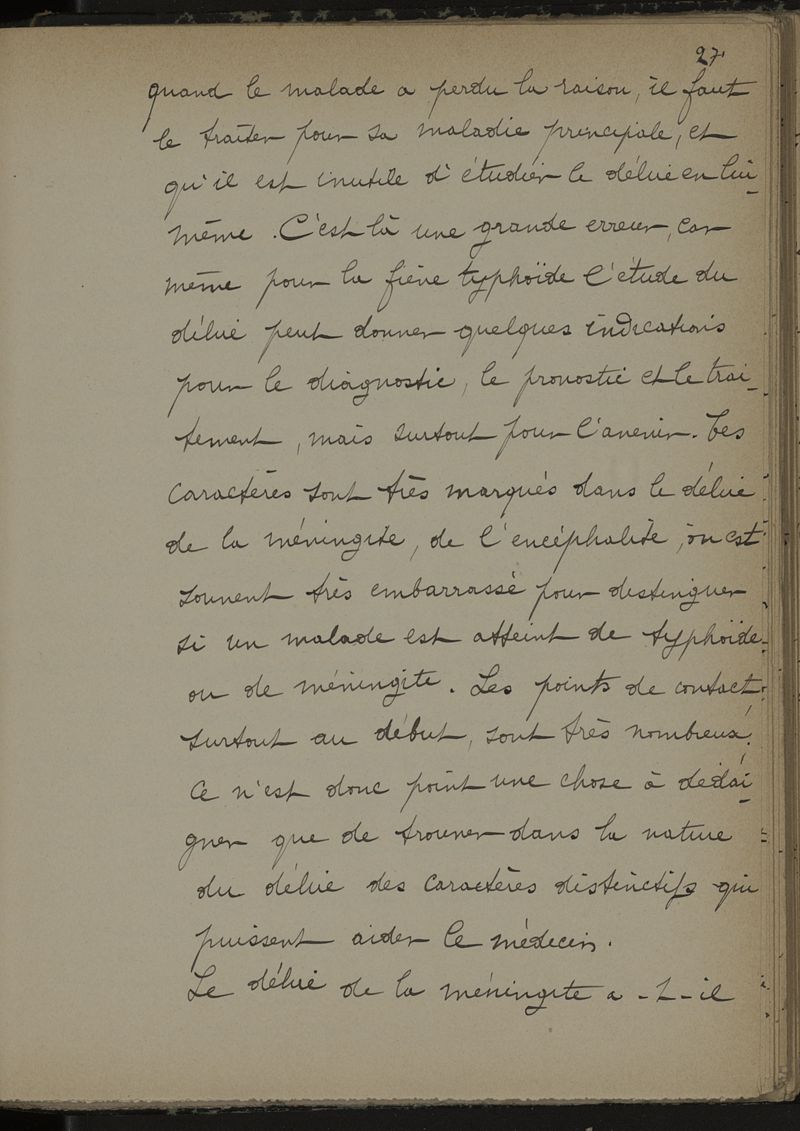 27
quand le malade a perdu la raison, il faut
le traiter pour sa maladie principale, et
qu'il est inutile d'étudier le délire en lui-
même. C'est là une grande erreur, car
même pour la fièvre typhoïde l'étude du
délire peut donner quelques indications
pour le diagnostic, le pronostic et le trai-
tement, mais surtout pour l'avenir. Ces
caractères sont très marqués dans le délire
de la méningite, de l'encéphalite, on est
souvent très embarrassé pour distinguer
si un malade est atteint de typhoïde
ou de méningite. Les points de contact,
surtout au début, sont très nombreux.
Ce n'est donc point une chose à dédai-
gner que de trouver dans la nature
du délire des caractères distinctifs qui
puissent aider le médecin.
Le délire de la méningite a-t-il